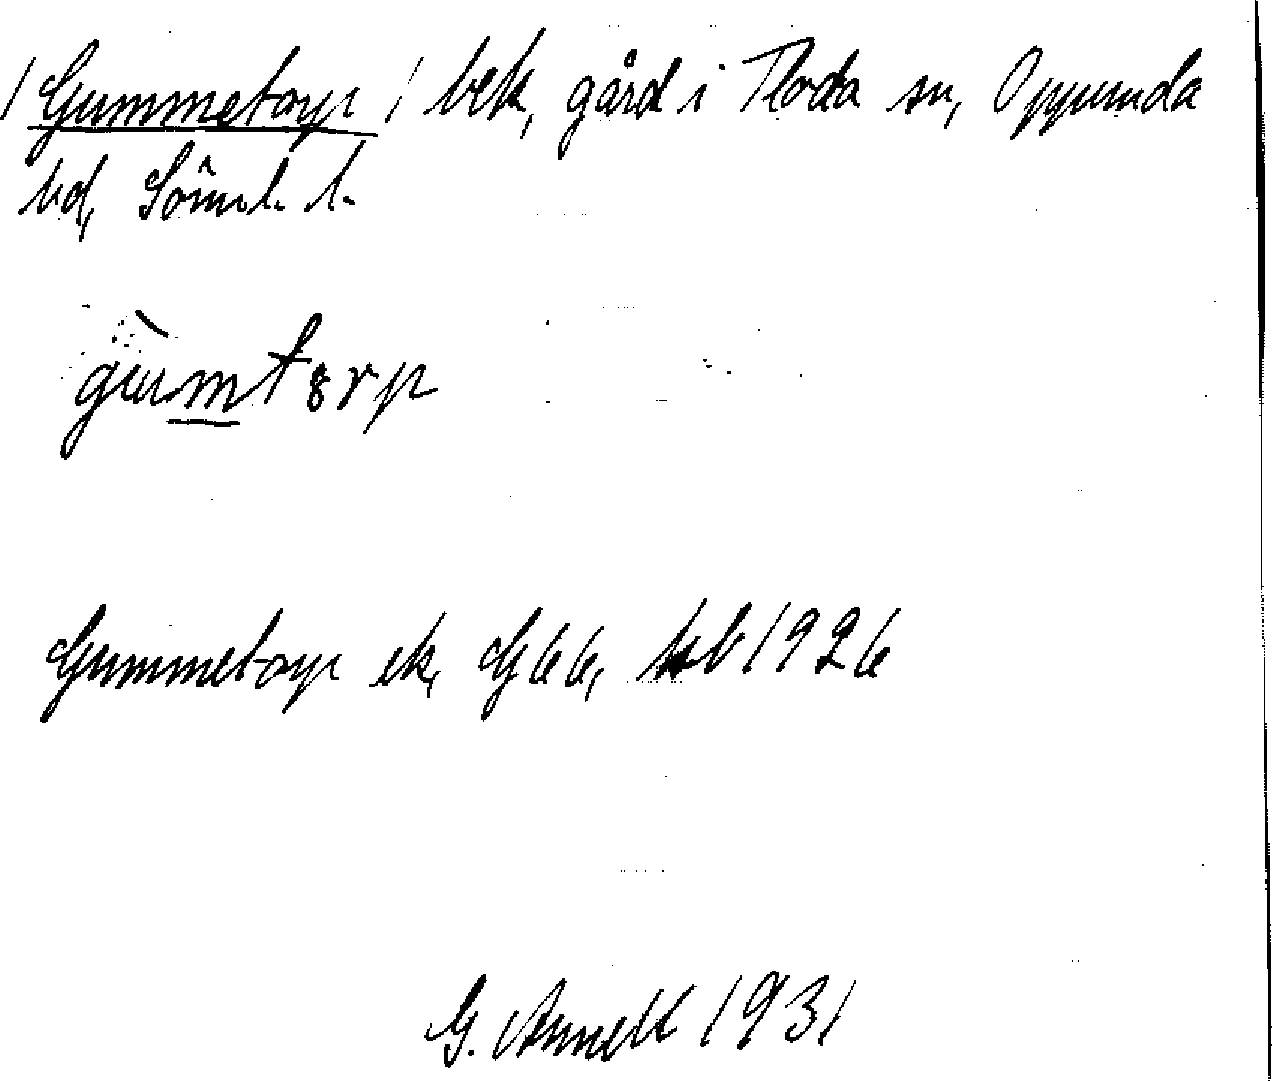 /Gummetorp/ bek, gård i Floda sn, Oppunda
hd, Söml. l.
gùmtȣrp
Gummetorp ek, G66, kb 1926
G. Annell 1931